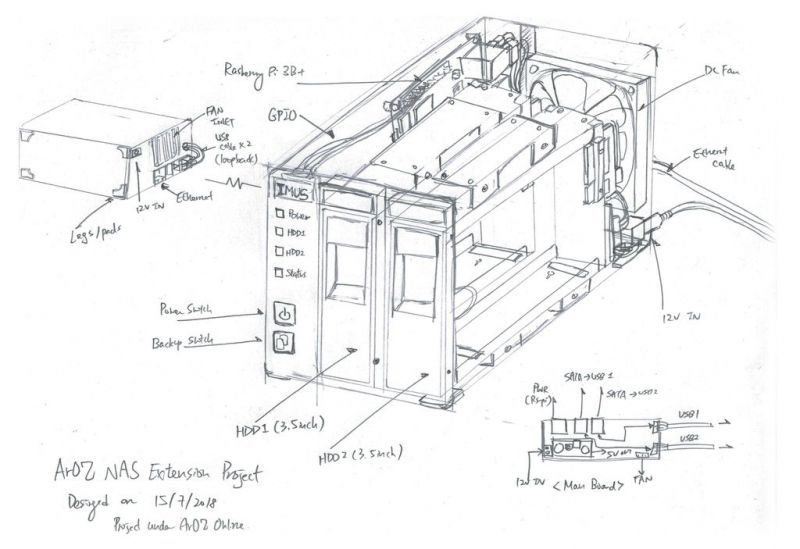 Rasberry Pi 3B+
GPIO
DC Fan
Ethernt
cable
12V IN
FAN
INLET
USB
cable x 2
(loopback)
Ethernet
12V IN
Legs/pads
IMUS
Power
HDD1
HDD2
Status
Power Switch
Backup Switch
HDD1 (3.5inch)
HDD2 (3.5inch)
PWR
(Rspi)
SATA → USB 1
SATA → USB2
USB1
USB2
5V out
12V IN
<Main Board>
FAN
ArOZ NAS Extension Project
Designed on 15/7/2018
Project under ArOZ Online.